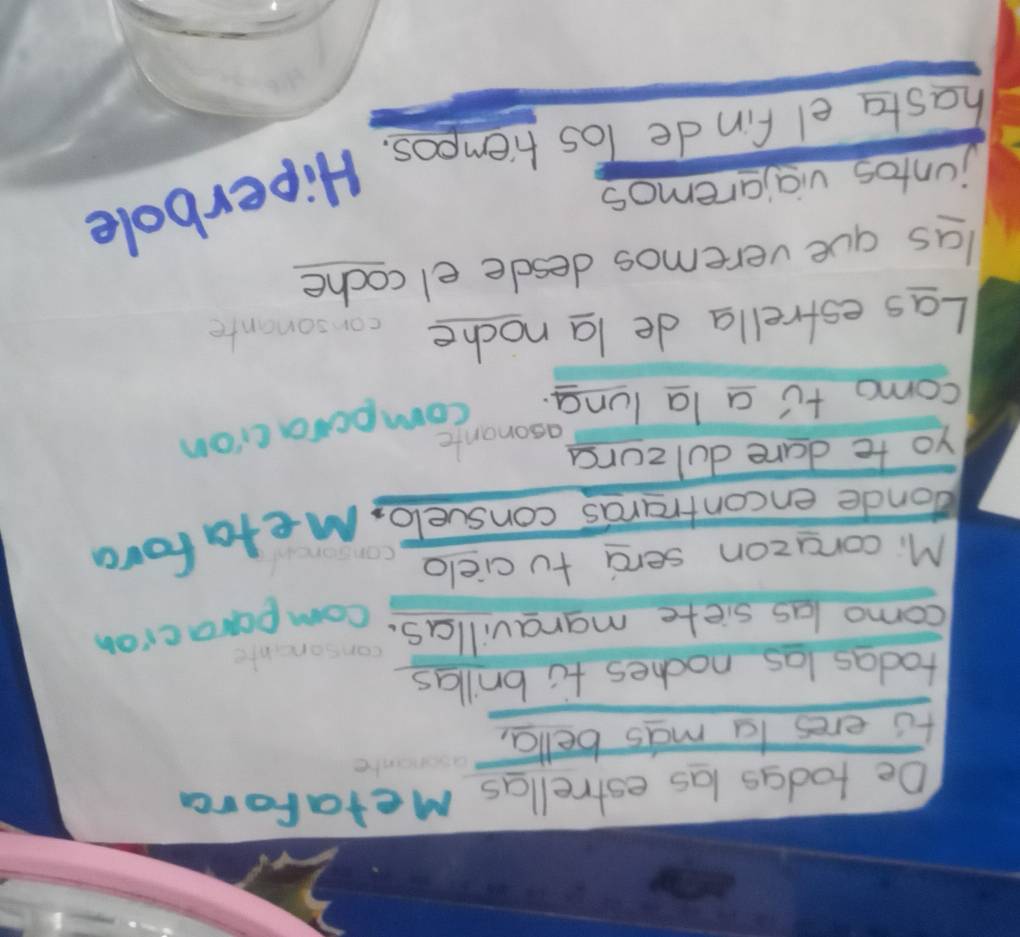 De todas las estrellas Metafora
asonante
tú eres la más bella,
todas las noches tú brillas
consonante
como las siete maravillas. comparacion
Mi corazon será tu cielo
consonante
donde encontrarás consuelo. Metafora
yo te dare dulzura
asonante
como tú a la luna. comparacion
Las estrella de la noche consonante
las que veremos desde el coche
juntos viajaremos
hasta el fin de los tiempos. Hiperbole